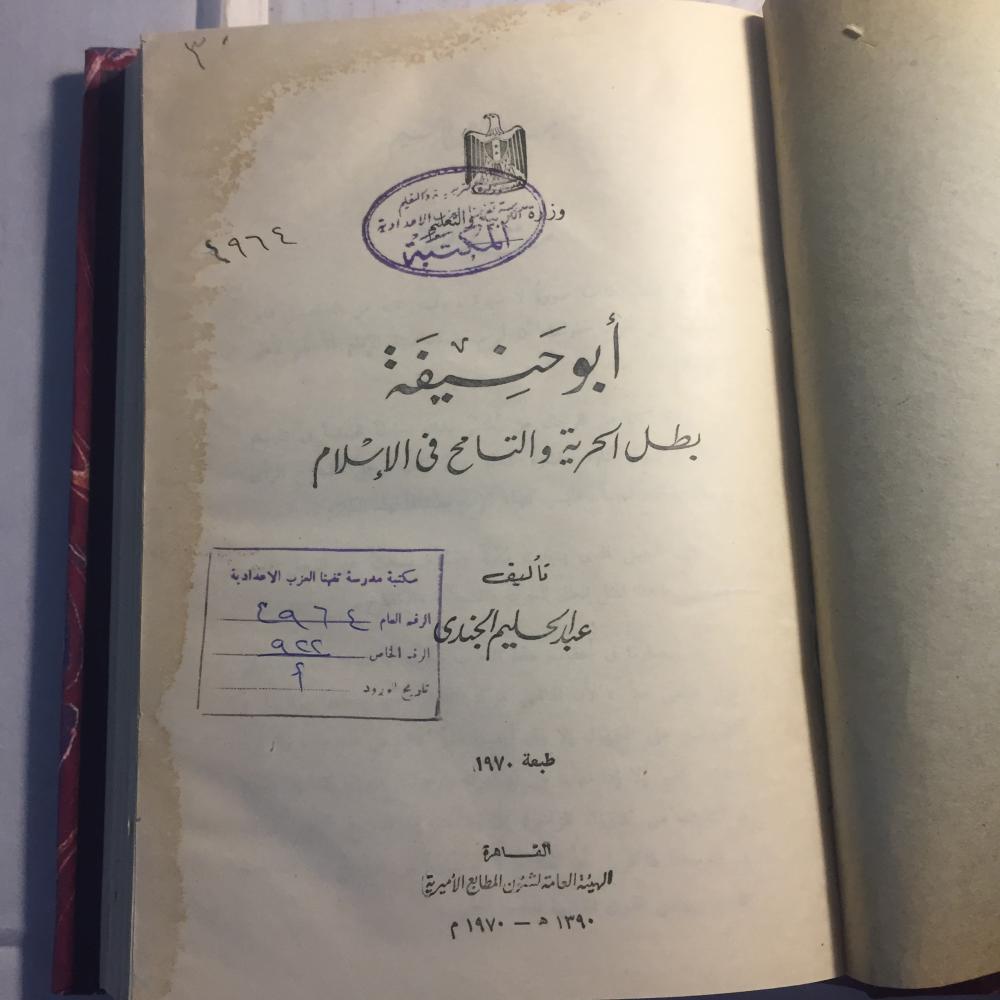 ٣
وزارة التربية والتعليم
المكتبة
٤٩٦٤
أبو حَنِيفَة
بطل الحرية والتامح فى الإسلام
تأليف
عبد الحليم الجندى
مكتبة مدرسة تفهنا العزب الاعدادية
الرقم العام ٤٩٦٤
الرقم الخاص ٩٢٢
تاريخ الورود
طبعة ١٩٧٠
القاهرة
الهيئة العامة لشئون المطابع الأميرية
١٣٩٠ هـ — ١٩٧٠ م